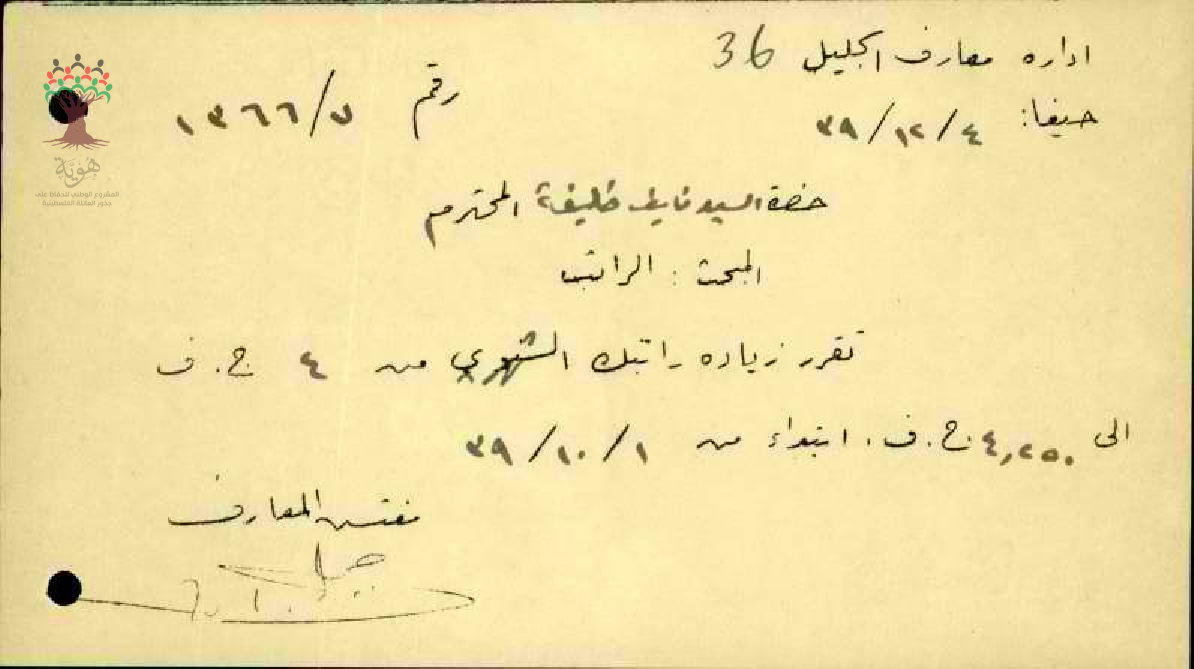 اداره معارف الجليل 36
حيفا: ٣٩/١٢/٤
رقم ١٣٦٦/٧
حضرة السيد نايف خليفة المحترم
المبحث : الراتب
تقرر زياده راتبك الشهري من ٤ ج. ف
الى ٤,٢٥٠ ج. ف. ابتداء من ٣٩/١٠/١
مفتش المعارف
هُوِيَّة
المشروع الوطني للحفاظ على
جذور العائلة الفلسطينية